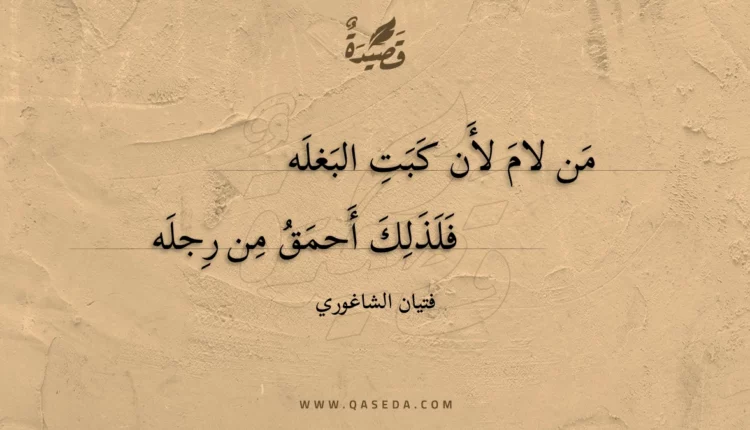 قَصِيدَةٌ
مَن لامَ لأَن كَبَتِ البَغلَه
فَلَذَلِكَ أَحمَقُ مِن رِجلَه
فتيان الشاغوري
WWW.QASEDA.COM